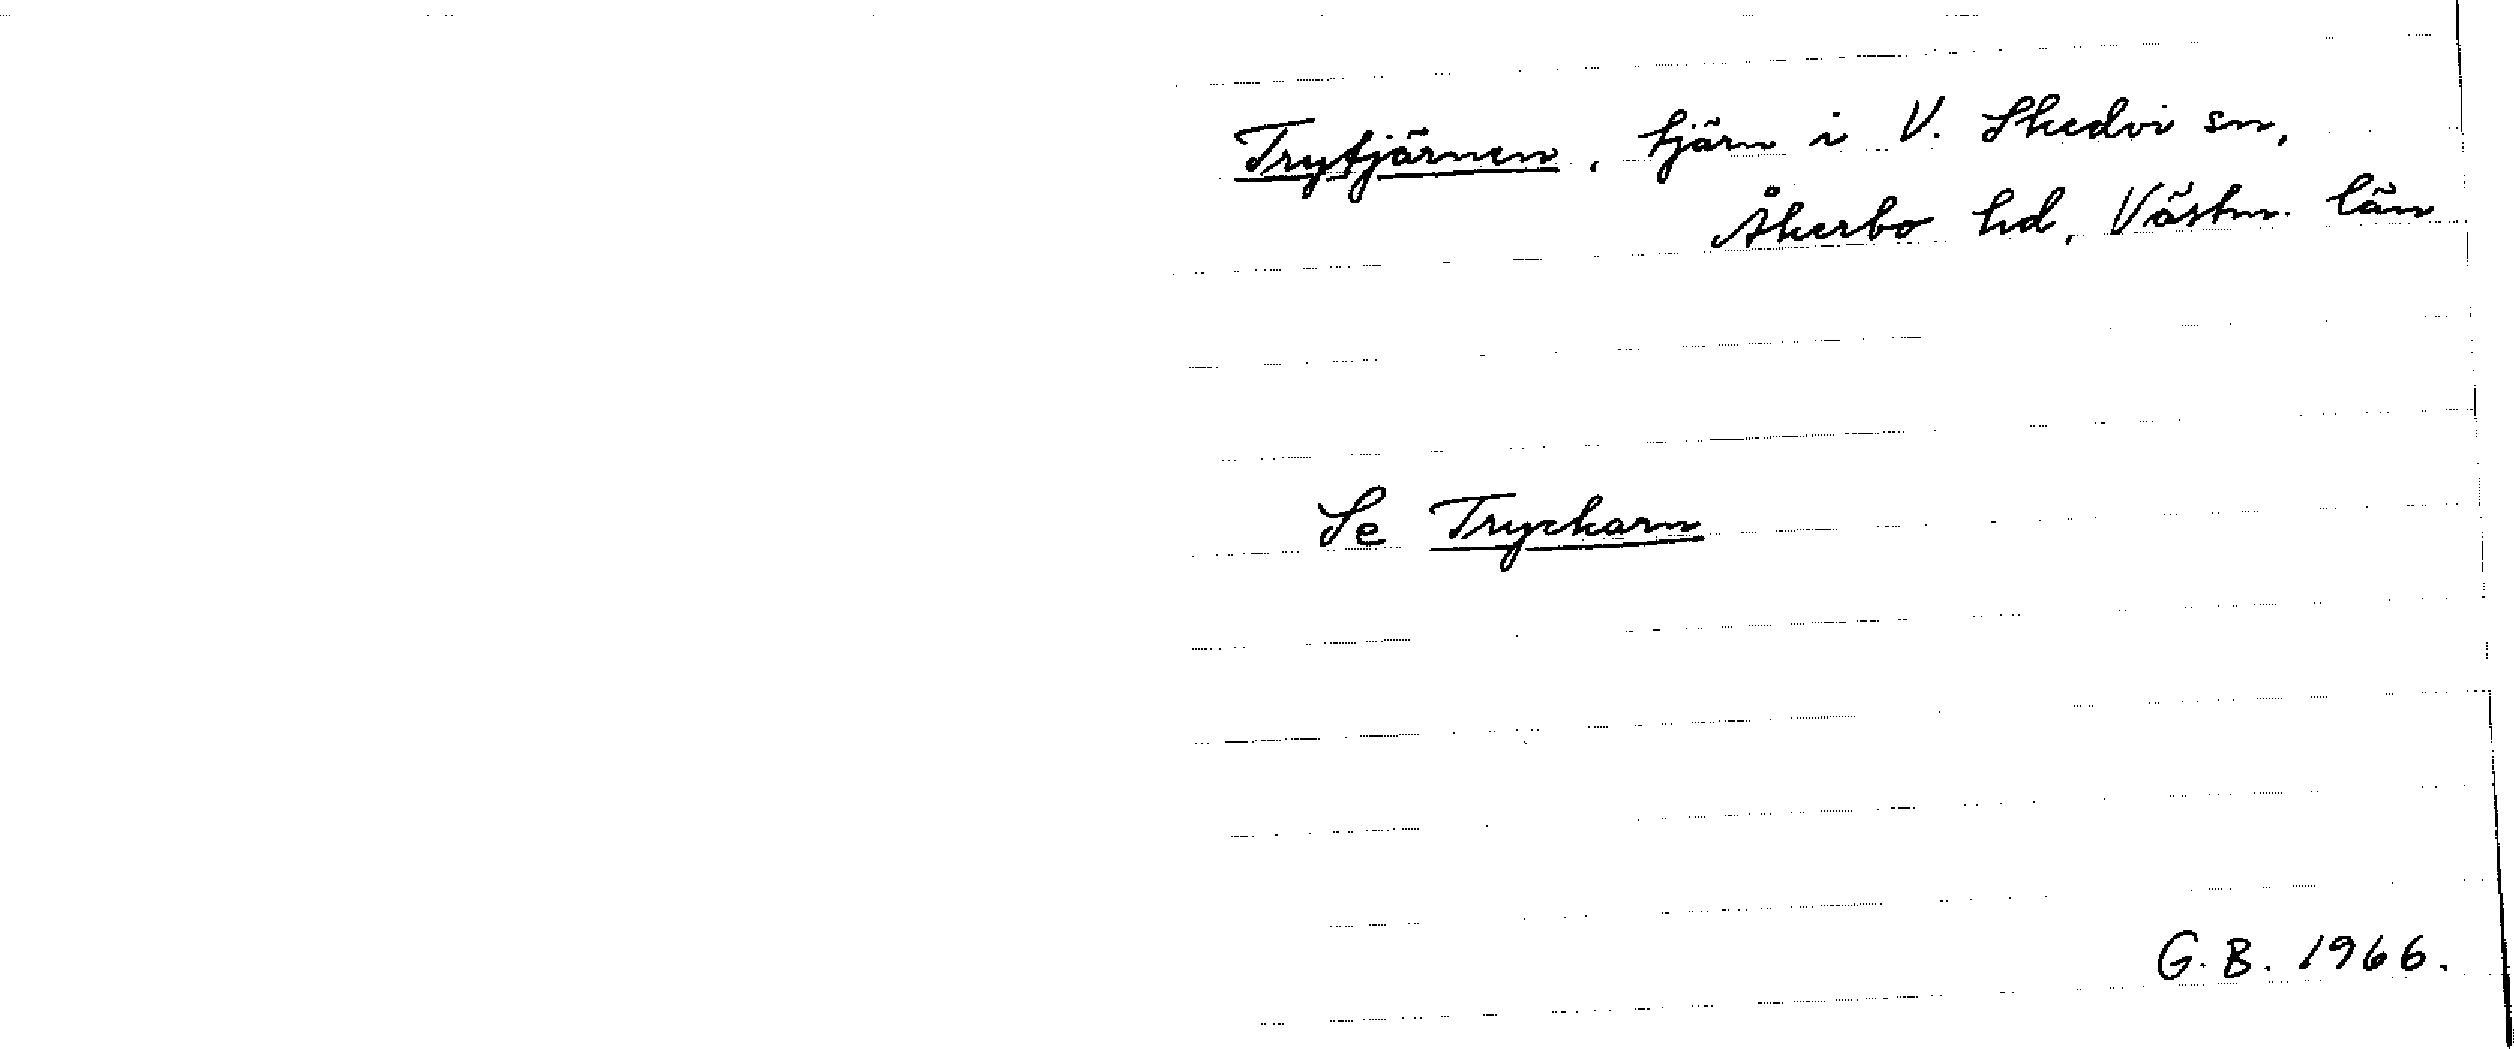 Trytjärnen, tjärn i V. Skedvi sn,
Åkerbo hd, Västm. län
Se Tryckarn
G.B. 1966.